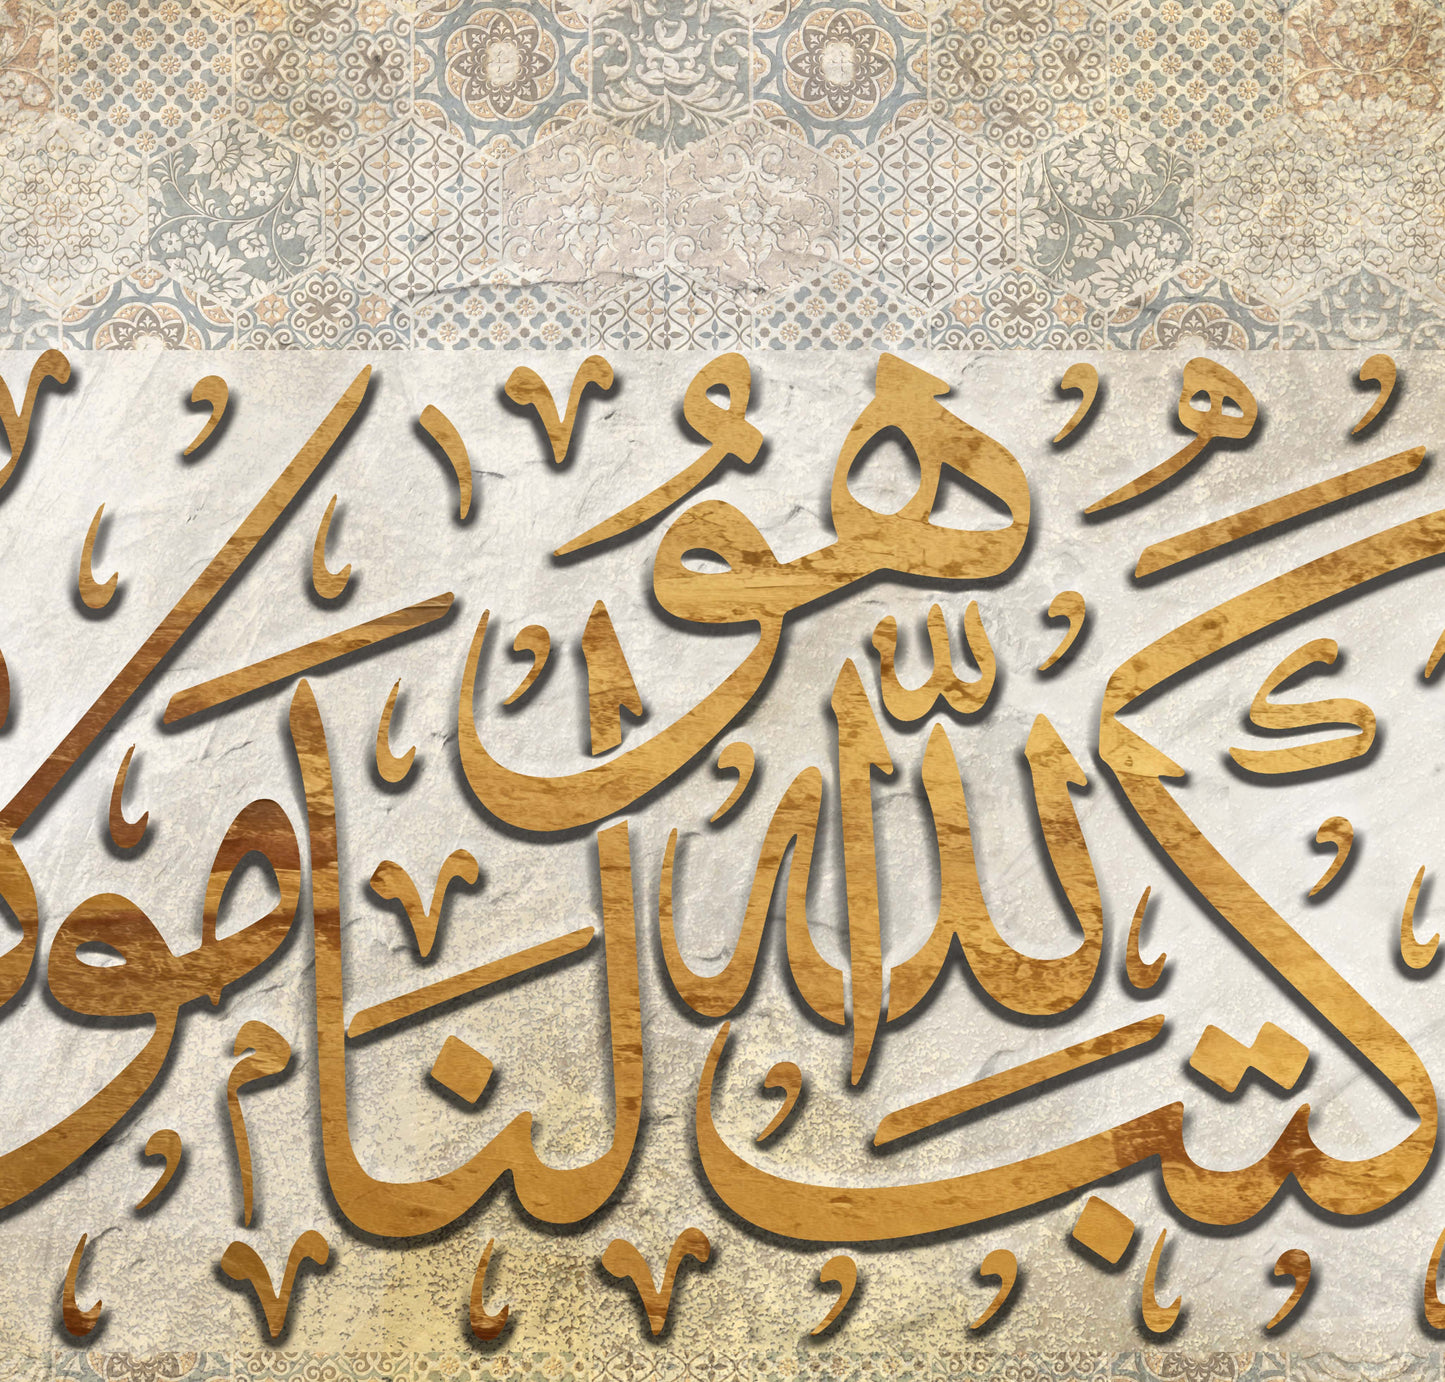 كَتَبَ اللّٰهُ لَنَا هُوَ مَو